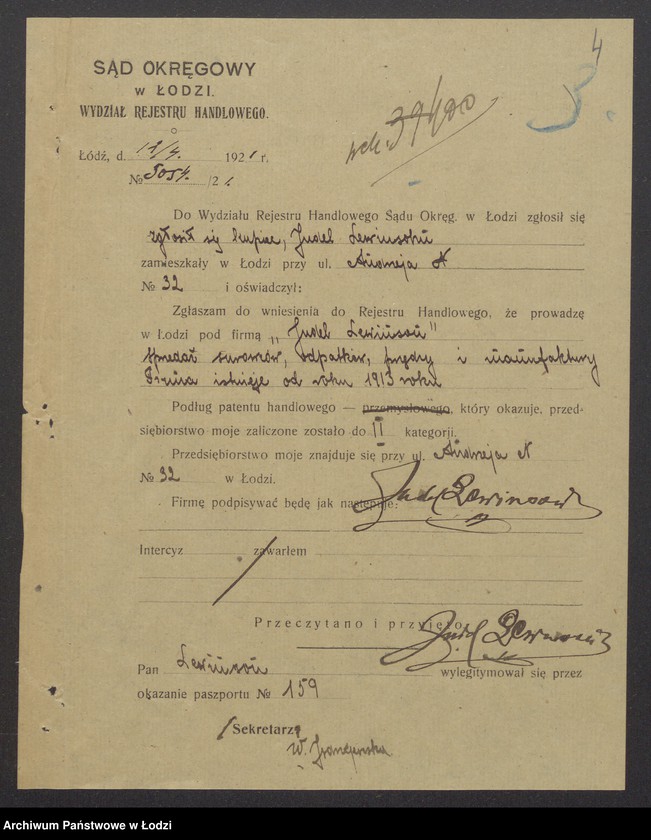 4
3.
SĄD OKRĘGOWY
W ŁODZI.
WYDZIAŁ REJESTRU HANDLOWEGO.
Łódź, d. 12/4. 1921 r.
№ 5054. /21
Do Wydziału Rejestru Handlowego Sądu Okręg. w Łodzi zgłosił się
zgłosił się kupiec, Judel Lewinsohn
zamieszkały w Łodzi przy ul. Andrzeja №
№ 32 i oświadczył:
Zgłaszam do wniesienia do Rejestru Handlowego, że prowadzę
w Łodzi pod firmą „Judel Lewinson"
sprzedaż surowców, odpadków, przędzy i manufaktury
Firma istnieje od roku 1913 roku
Podług patentu handlowego — przemysłowego, który okazuje, przed-
siębiorstwo moje zaliczone zostało do II kategorji.
Przedsiębiorstwo moje znajduje się przy ul. Andrzeja №
№ 32 w Łodzi.
Firmę podpisywać będę jak następuje: Judel Lewinson
Intercyz zawarłem
Przeczytano i przyjęto. Judel Lewinson
Pan Lewinson wylegitymował się przez
okazanie paszportu № 159
Sekretarz
Archiwum Państwowe w Łodzi